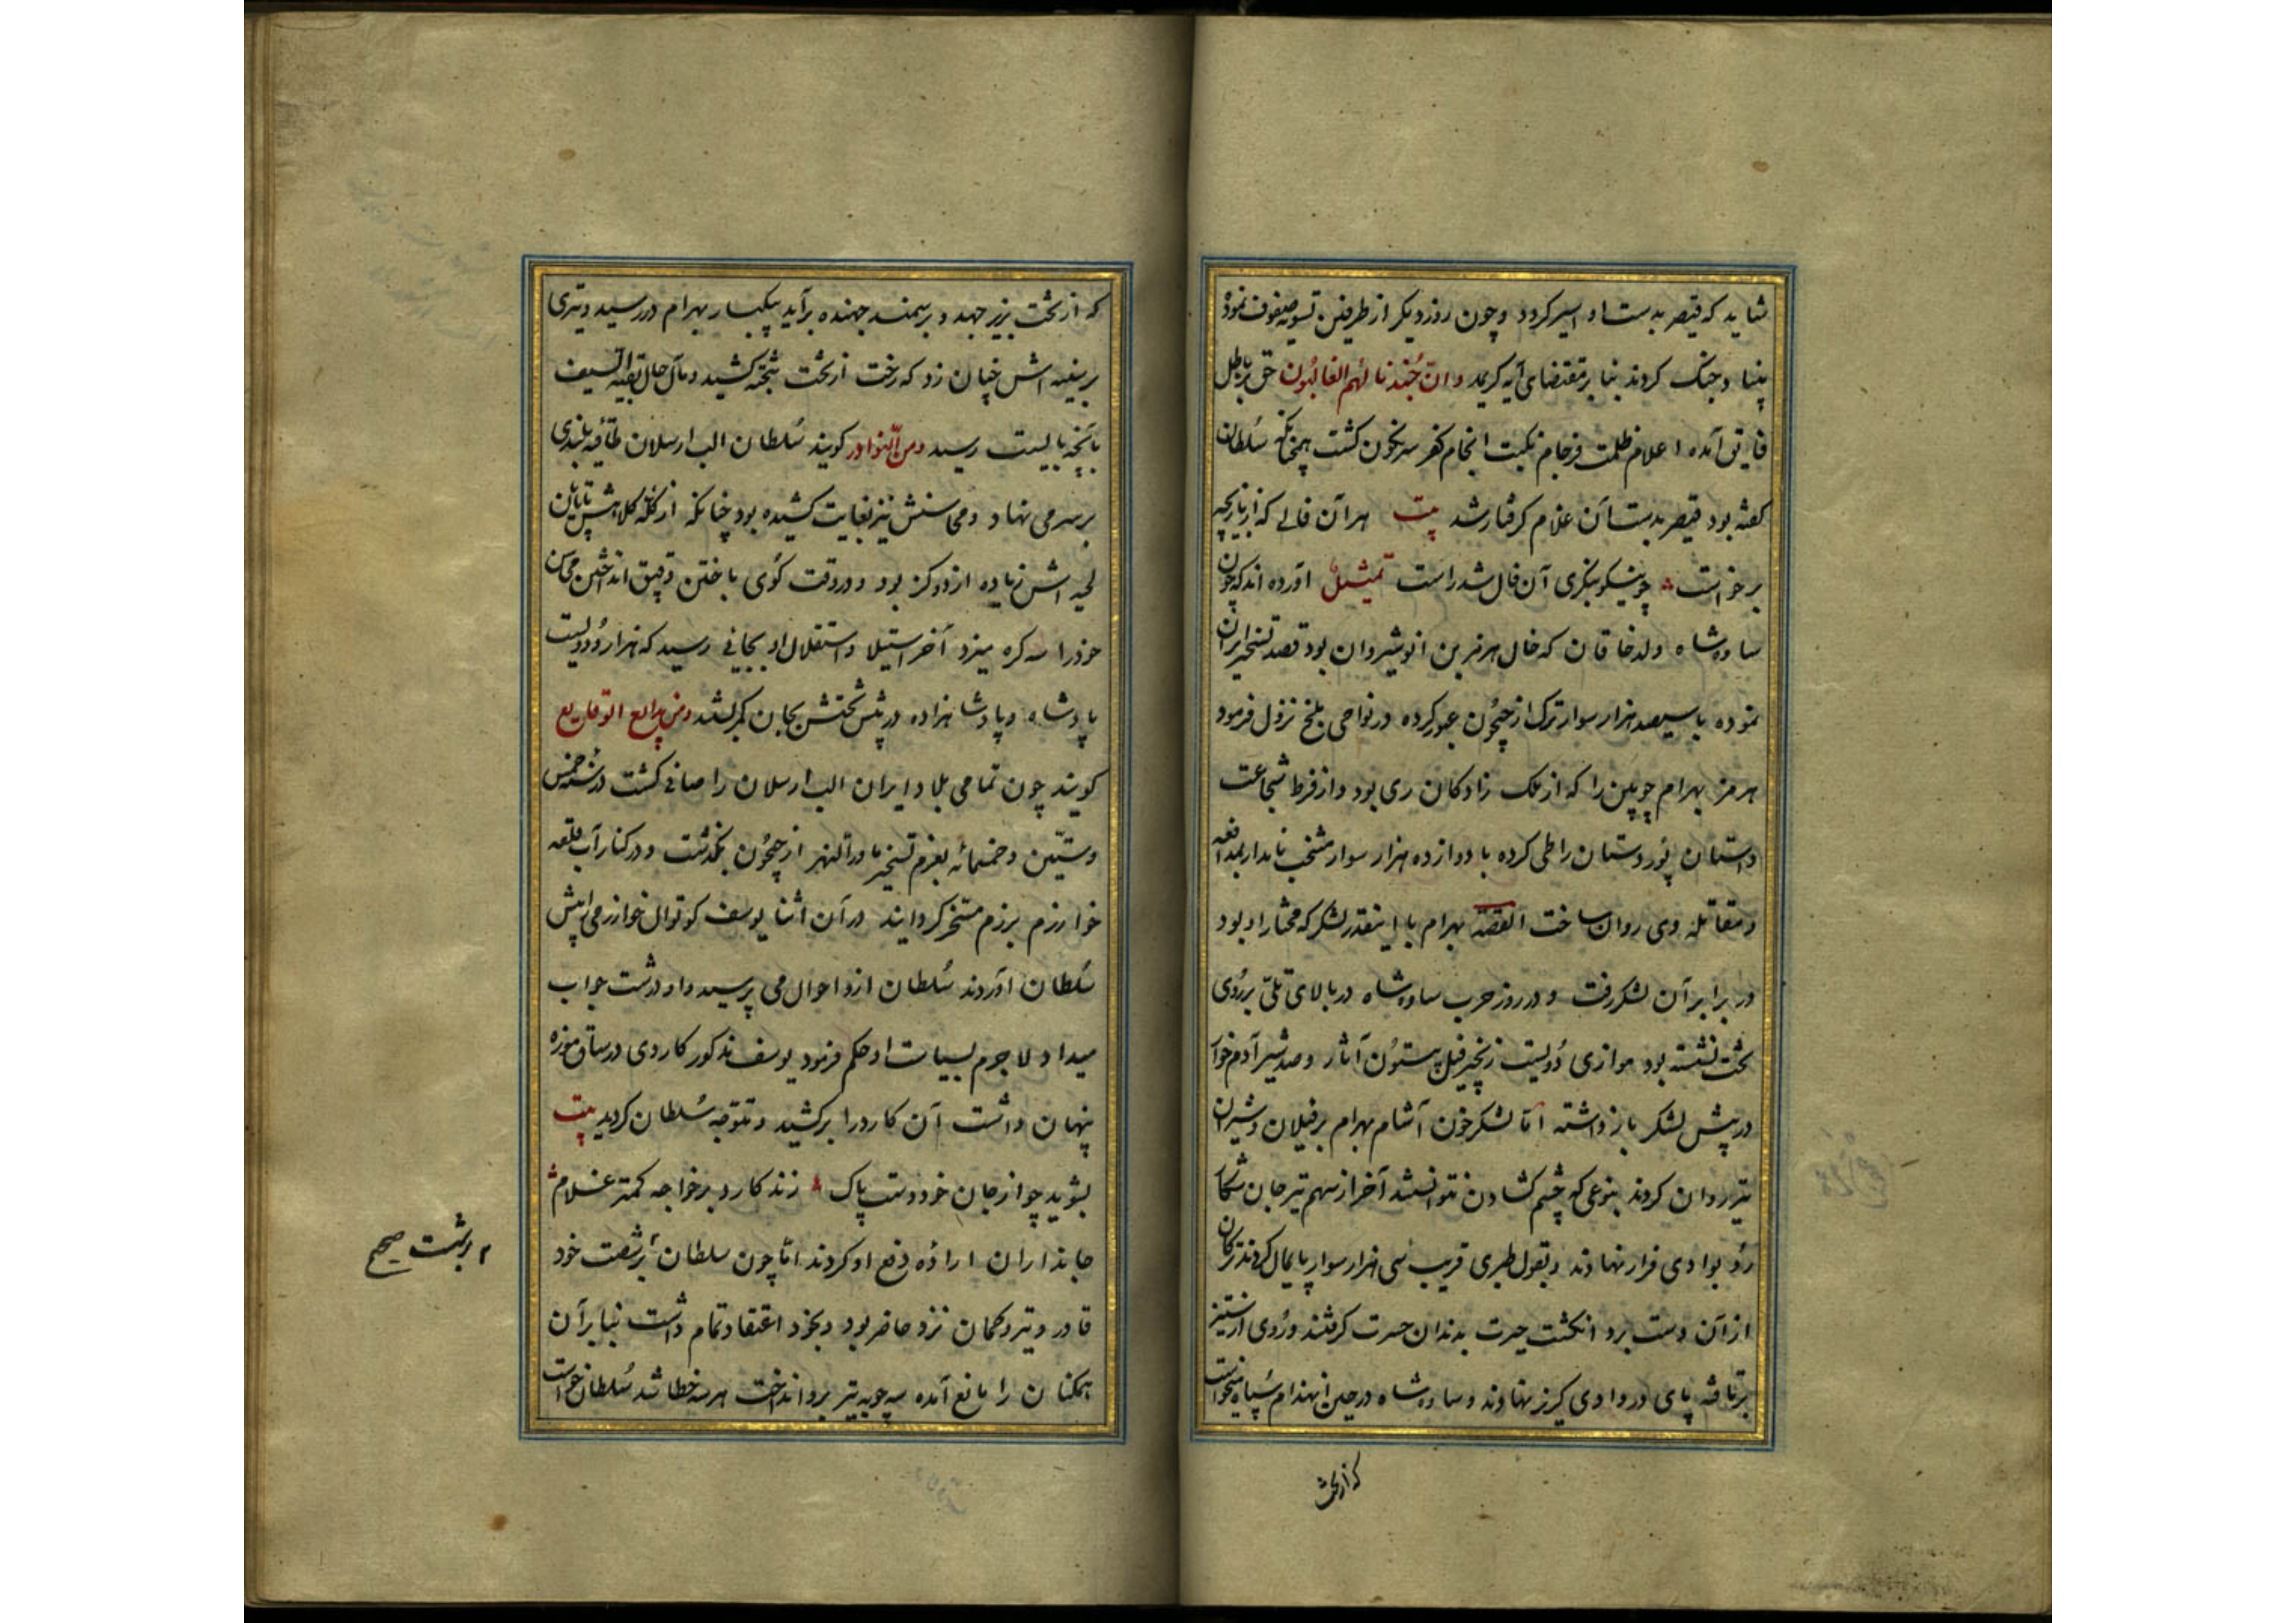 شاید که قیصر بدست او اسیر کردد و چون روز دیکر از طرفین تسویه صفوف نموده
بنیاد جنک کردند بنا بر مقتضای آیه کریمه وان جُندنا لهُم الغالبُون حق بر باطل
فایق آمده اعلام ظلمت فرجام نکبت انجام کفر سرنکون کشت همچنانکه سُلطان
کفته بود قیصر بدست آن غلام کرفتار شد بیت هر آن فالی که از بازیچه
برخاست چو نیکو بنکری آن فال شد راست تمثیل آورده اند که چون
ساوه شاه ولد خاقان که خال هرمز بن انوشیروان بود قصد تسخیر ایران
نموده با سیصد هزار سوار ترک از جیحُون عبور کرده در نواحی بلخ نزول فرمود
هرمز بهرام چوبین را که از ملک زادکان ری بود و از فرط شجاعت
داستان پُور دستان را طی کرده با دوازده هزار سوار منتخب نامدار بمدافعه
و مقاتله وی روان ساخت القصّه بهرام با اینقدر لشکر که مختار او بود
در برابر آن لشکر رفت و در روز حرب ساوه شاه در بالای تلّی بر رُوی
تخت نشسته بود موازی دُویست زنجیر فیل بیستُون آثار و صد شیر آدم خوار
در پیش لشکر باز داشته امّا لشکر خون آشام بهرام بر فیلان و شیران
تیر روان کردند بنوعی که چشم کشادن نتوانستند آخر از سهم تیر جان شکار
رُو بوادی فرار نهادند و بقول طبری قریب سی هزار سوار پایمال کردند ترکان
از آن دست برد انکشت حیرت بدندان حسرت کرفتند و رُوی از ستیز
برتافته پای در وادی کریز نهادند و ساوه شاه در حین انهزام سُپاه میخواست
که از تخت
که از تخت بزیر جهد و بر سمند جهنده برآید بیکبار بهرام در رسید و تیری
بر سینه اش چنان زد که رخت از تخت بتخته کشید و مآل حال بقیة السیف
بآنچه بایست رسید ومن النّوادر کویند سُلطان الب ارسلان طاقیه بلندی
بر سر می نهاد و محاسنش نیز بغایت کشیده بود چنانکه از کله کلاهش تا پایان
لحیه اش زیاده از دو کز بود و در وقت کُوی باختن و قپق انداختن محاسن
خود را سه کره میزد آخر استیلا و استقلال او بجایی رسید که هزار و دویست
پادشاه و پادشاهزاده در پیش تختش بجان کمر بستند ومن بدایع الوقایع
کویند چون تمامی بلاد ایران الب ارسلان را صافی کشت در سنه خمس
و ستّین و خمسمائه بعزم تسخیر ماوراء النهر از جیحُون بکذشت و در کنار آب قلعه
خوارزم برزم مسخّر کردانید در آن اثنا یوسف کوتوال خوارزمی را پیش
سُلطان آوردند سُلطان ازو احوال می پرسید و او درشت جواب
میداد لاجرم بسیاست او حکم فرمود یوسف مذکور کاردی در ساق موزه
پنهان داشت آن کارد را برکشید و متوجّه سُلطان کردید بیت
بشوید چو از جان خود دست پاک زند کارد بر خواجه کمتر غلام
جانداران اراده دفع او کردند امّا چون سلطان بر شصت خود
قادر و تیر و کمان نزد حاضر بود و بخود اعتقاد تمام داشت بنابر آن
همکنان را مانع آمده سه چوبه تیر برو انداخت هر سه خطا شد سُلطان خواست
بر شست صح